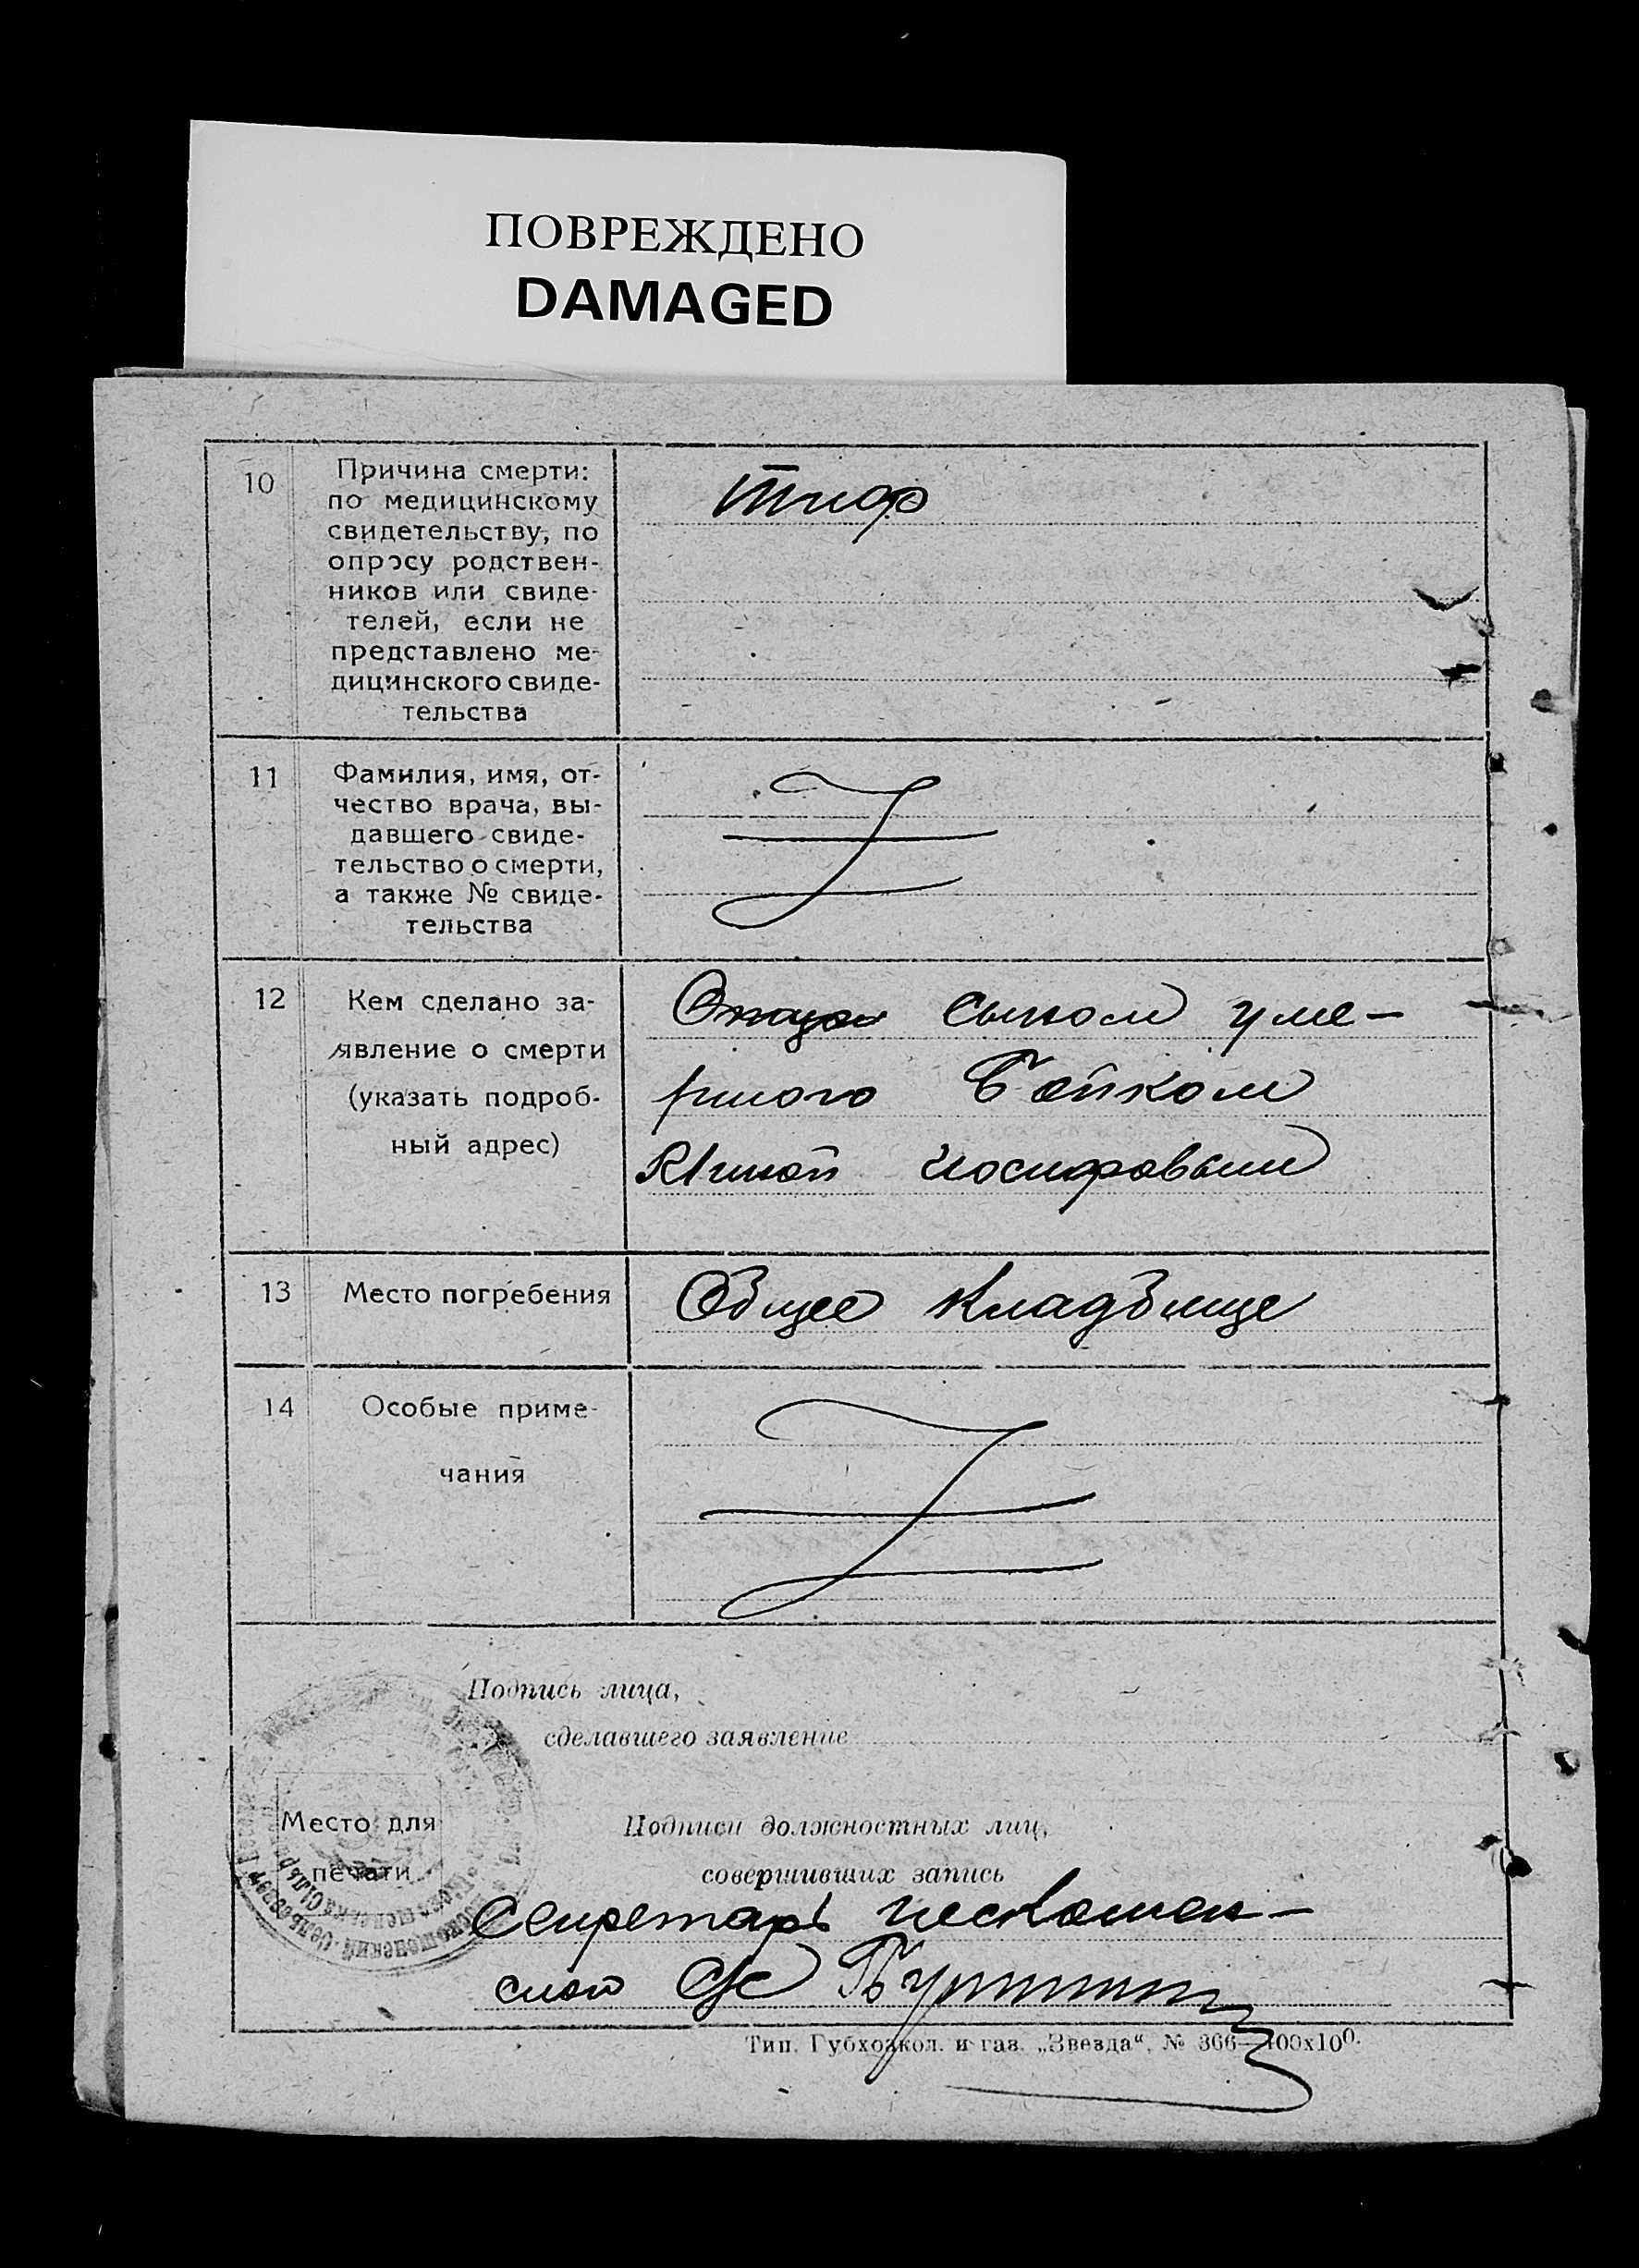 ПОВРЕЖДЕНО
DAMAGED
10
Причина смерти:
по медицинскому
свидетельству, по
опросу родствен-
ников или свиде-
телей, если не
представлено ме-
дицинского свиде-
тельства
Тиф
11
Фамилия, имя, от-
чество врача, вы-
давшего свиде-
тельство о смерти,
а также № свиде-
тельства
12
Кем сделано за-
явление о смерти
(указать подроб-
ный адрес)
сыном уме-
ршого Бойком
Иосифовым
13
Место погребения
Общее кладбище
14
Особые приме-
чания
Подпись лица,
сделавшего заявление
Место для
печати
Подписи должностных лиц,
совершивших запись
Секретарь Песковотен-
ской С/с
Тип. Губхозкол. и газ. „Звезда“, № 366—400х100.